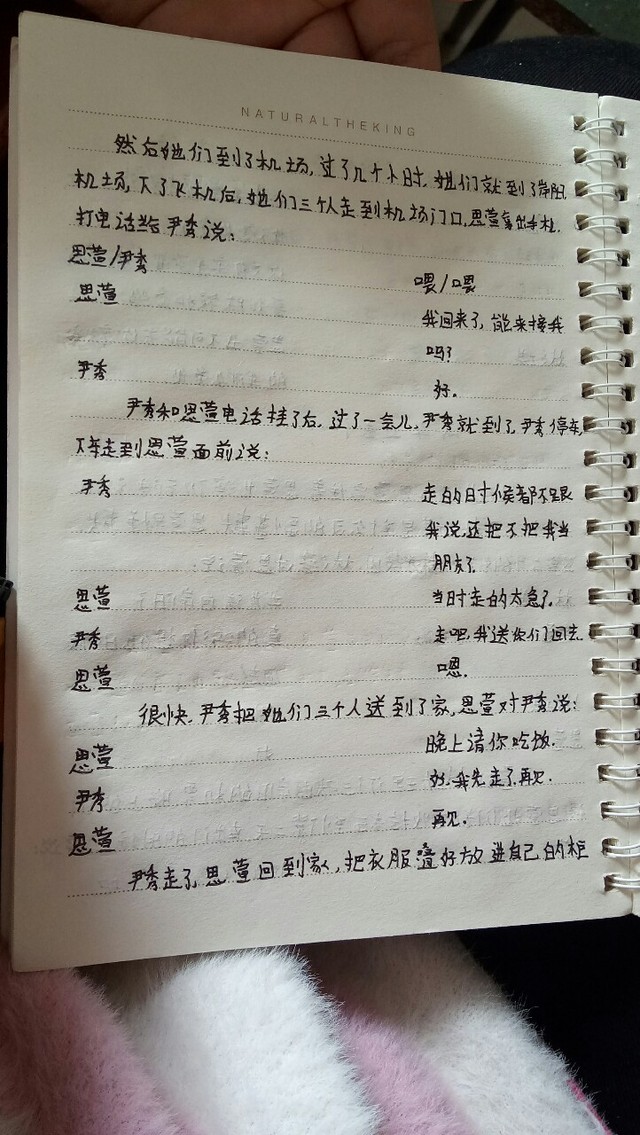 NATURALTHEKING
然后她们到了机场,过了几个小时,她们就到了
机场,下了飞机后,她们三个人走到机场门口,思萱拿出手机
打电话给尹秀说:
思萱/尹秀 喂/喂
思萱 我回来了,能来接我
吗?
尹秀 好.
尹秀和思萱电话挂了后,过了一会儿,尹秀就到了,尹秀停车,
下车走到思萱面前说:
尹秀 走的时候都不跟
我说,还把不把我当
朋友了.
思萱 当时走的太急了.
尹秀 走吧,我送你们回去.
思萱 嗯.
很快,尹秀把她们三个人送到了家,思萱对尹秀说:
思萱 晚上请你吃饭.
尹秀 好,我先走了,再见.
思萱 再见.
尹秀走了,思萱回到家,把衣服叠好放进自己的柜